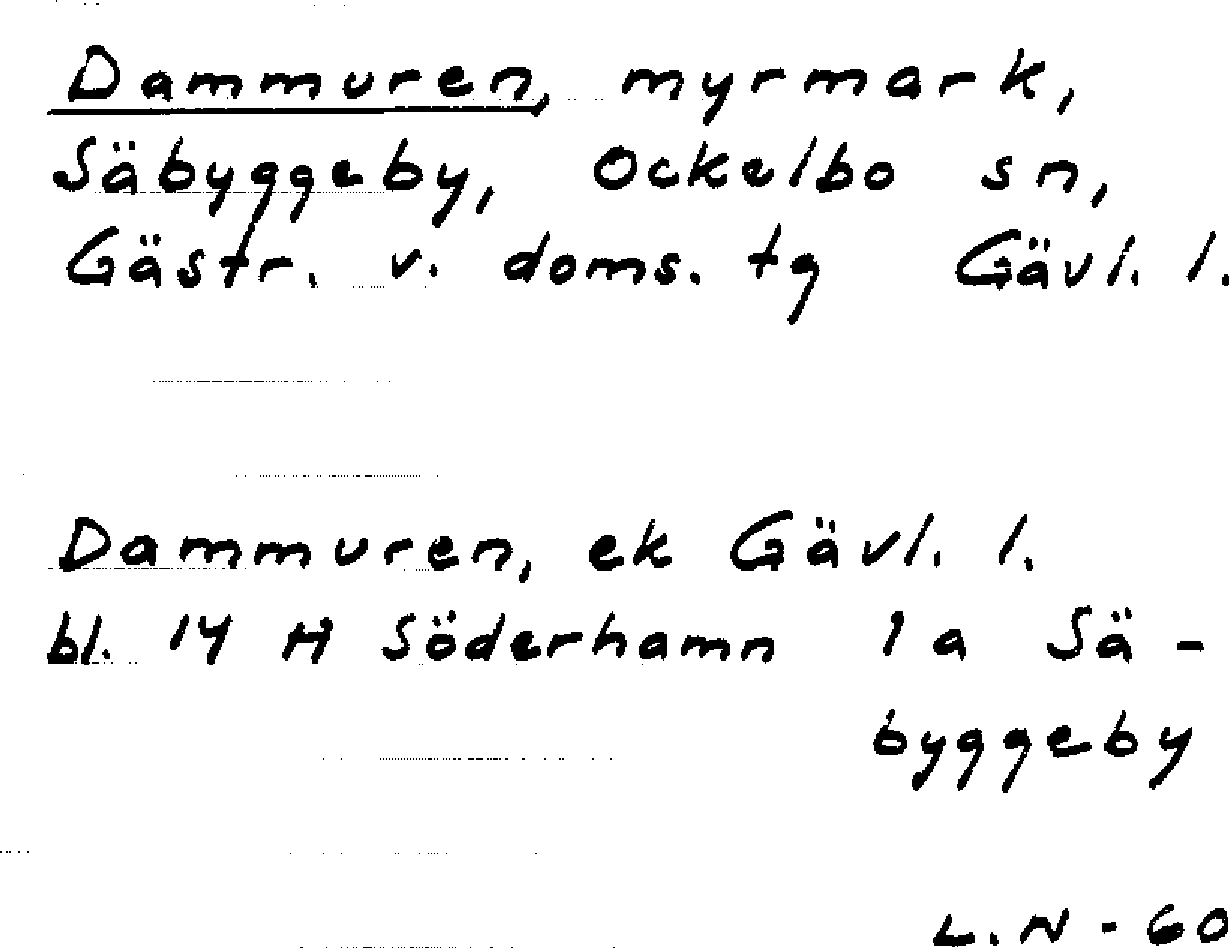 Dammuren, myrmark,
Säbyggeby, Ockelbo sn,
Gästr. v. doms. tg Gävl. l.
Dammuren, ek Gävl. l.
bl. 14 H Söderhamn 1a Sä-
byggeby
L.N - 60